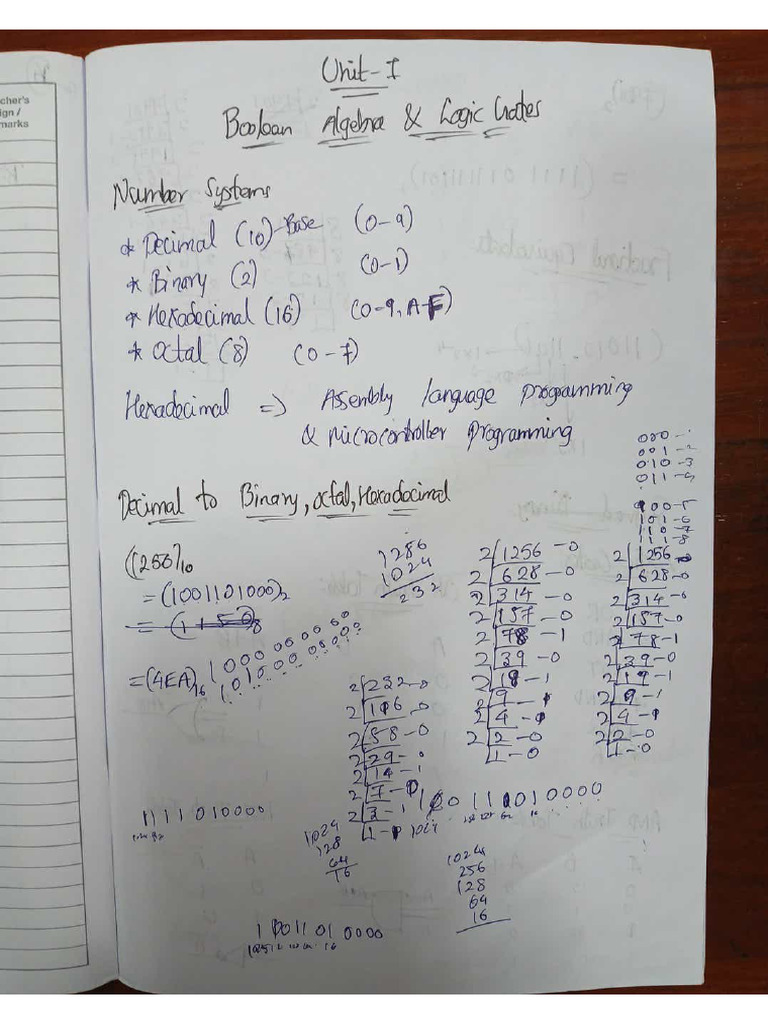 cher's
ign /
marks
Unit-I
Boolean Algebra & Logic Gates
Number Systems
* Decimal (10)-Base (0-9)
* Binary (2) (0-1)
* Hexadecimal (16) (0-9, A-F)
* Octal (8) (0-7)
Hexadecimal => Assembly language programming
& Microcontroller Programming
000-1
001-2
010-3
011-4
100-5
101-6
110-7
111-8
Decimal to Binary, Octal, Hexadecimal
= (1001101000)2
= (4EA)16
1024
232
2 1256-0
2 628-0
2 314-0
2 157-0
2 78-1
2 39-0
2 19-1
2 9-1
2 4-1
2 2-0
1-0
2 1256
2 628-0
2 314-0
2 157-0
2 78-1
2 39-0
2 19-1
2 9-1
2 4-1
2 2-0
1-0
2 232-0
2 116-0
2 58-0
2 29-0
2 14-1
2 7-0
2 3-1
1-1
1111010000
1024
128
64
16
1024
256
128
64
16
10011010000